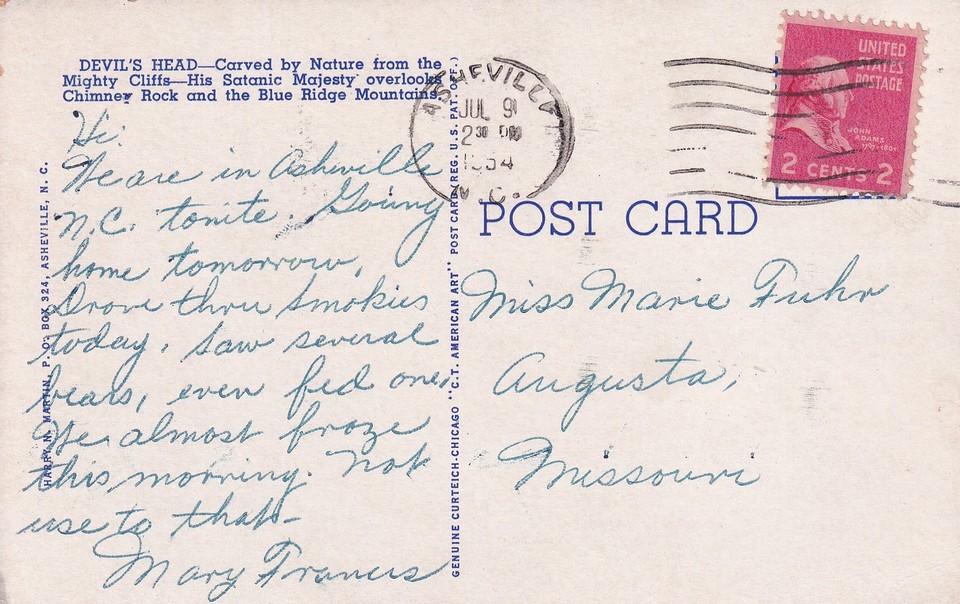 DEVIL'S HEAD—Carved by Nature from the
Mighty Cliffs—His Satanic Majesty overlooks
Chimney Rock and the Blue Ridge Mountains.
Hi.
We are in Asheville
N.C. tonite. Going
home tomorrow.
Drove thru Smokies
today. Saw several
bears, even fed one.
We almost froze
this morning. Not
use to that—
Mary Francis
HARRY N. MARTIN, P. O. BOX 324, ASHEVILLE, N. C.
GENUINE CURTEICH-CHICAGO "C.T. AMERICAN ART" POST CARD (REG. U.S. PAT. OFF.)
ASHEVILLE
JUL 9
2 30 PM
1954
N.C.
UNITED
STATES
POSTAGE
JOHN
ADAMS
1797-1801
2 CENTS 2
POST CARD
Miss Marie Fuhr
Augusta,
Missouri